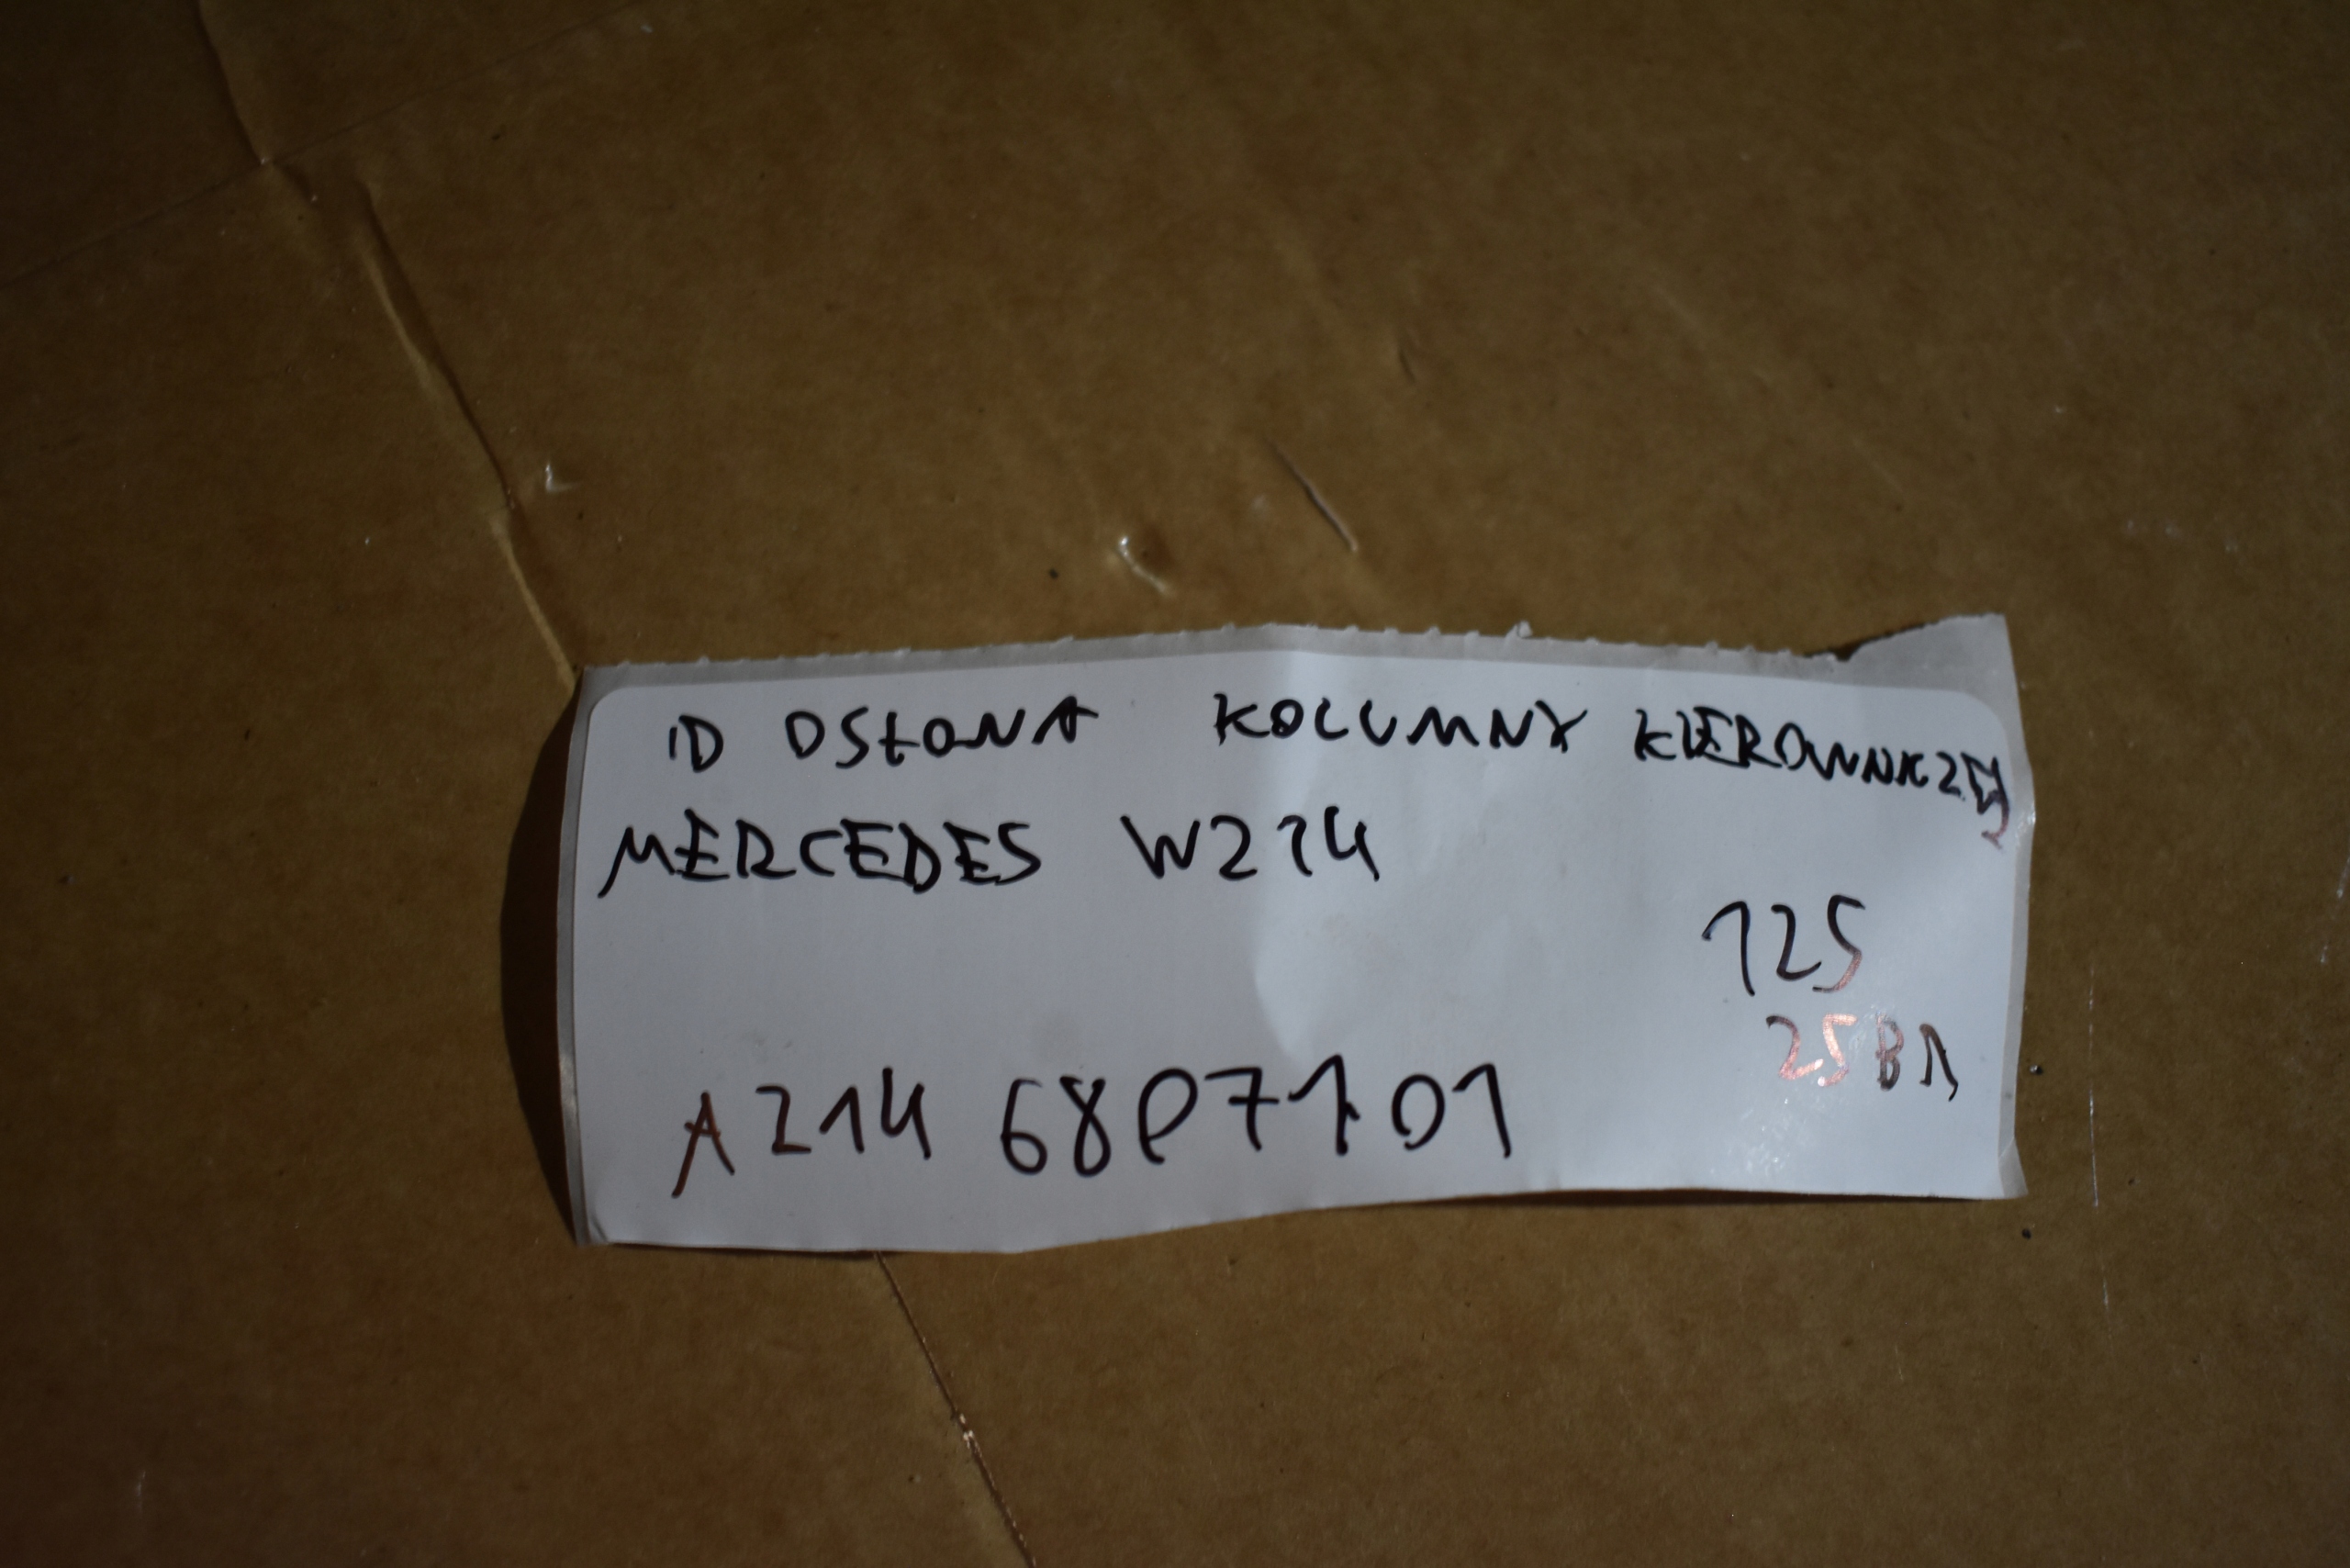 ID OSŁONA KOLUMNY KIEROWNICZEJ
MERCEDES W214
125
25 B1
A 214 6807101